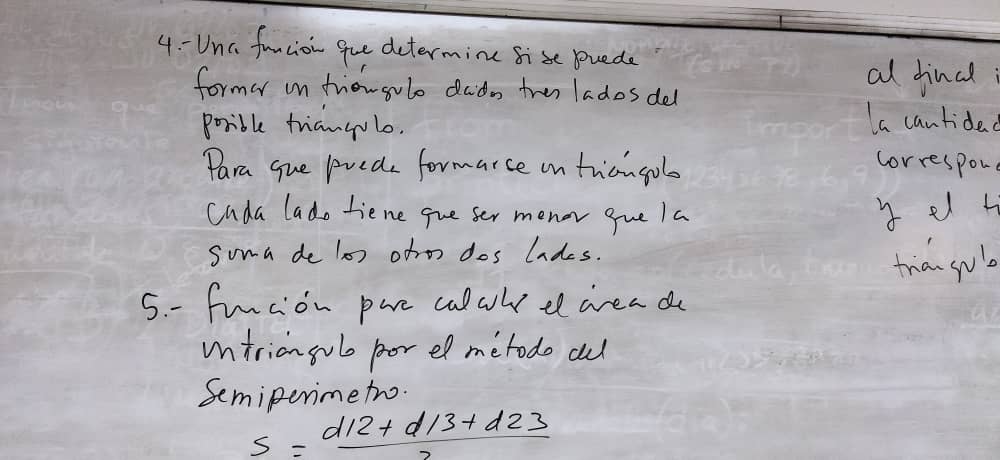 4.- Una función que determine si se puede
formar un triángulo dados tres lados del
posible triángulo.
Para que pueda formarce un triángulo
cada lado tiene que ser menor que la
suma de los otros dos lados.
5.- función para calcular el área de
un triángulo por el método del
Semiperimetro.
S = d12 + d13 + d23
al final
la cantidad
correspond
y el ti
triángulo